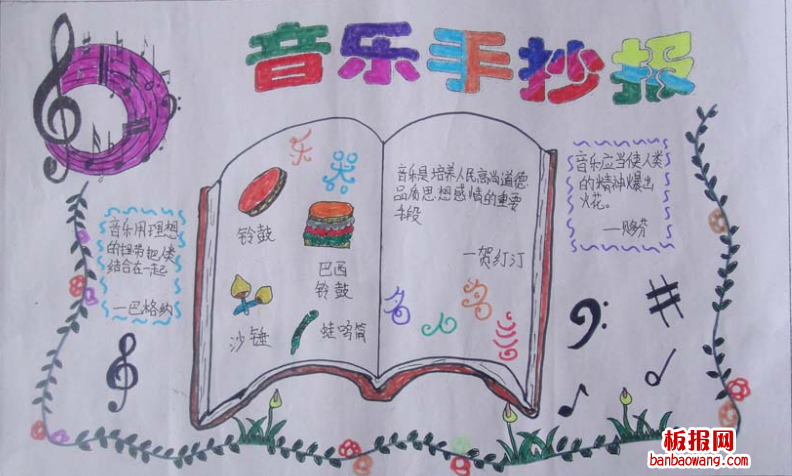 音乐手抄报
音乐用理想
的纽带把人类
结合在一起
—巴格纳
乐器
铃鼓
巴西
铃鼓
沙锤
蛙鸣筒
音乐是培养人民高尚道德
品质思想感情的重要
手段
—贺红汀
名人名言
音乐应当使人类
的精神爆出
火花。
—贝多芬
板报网
banbaowang.com